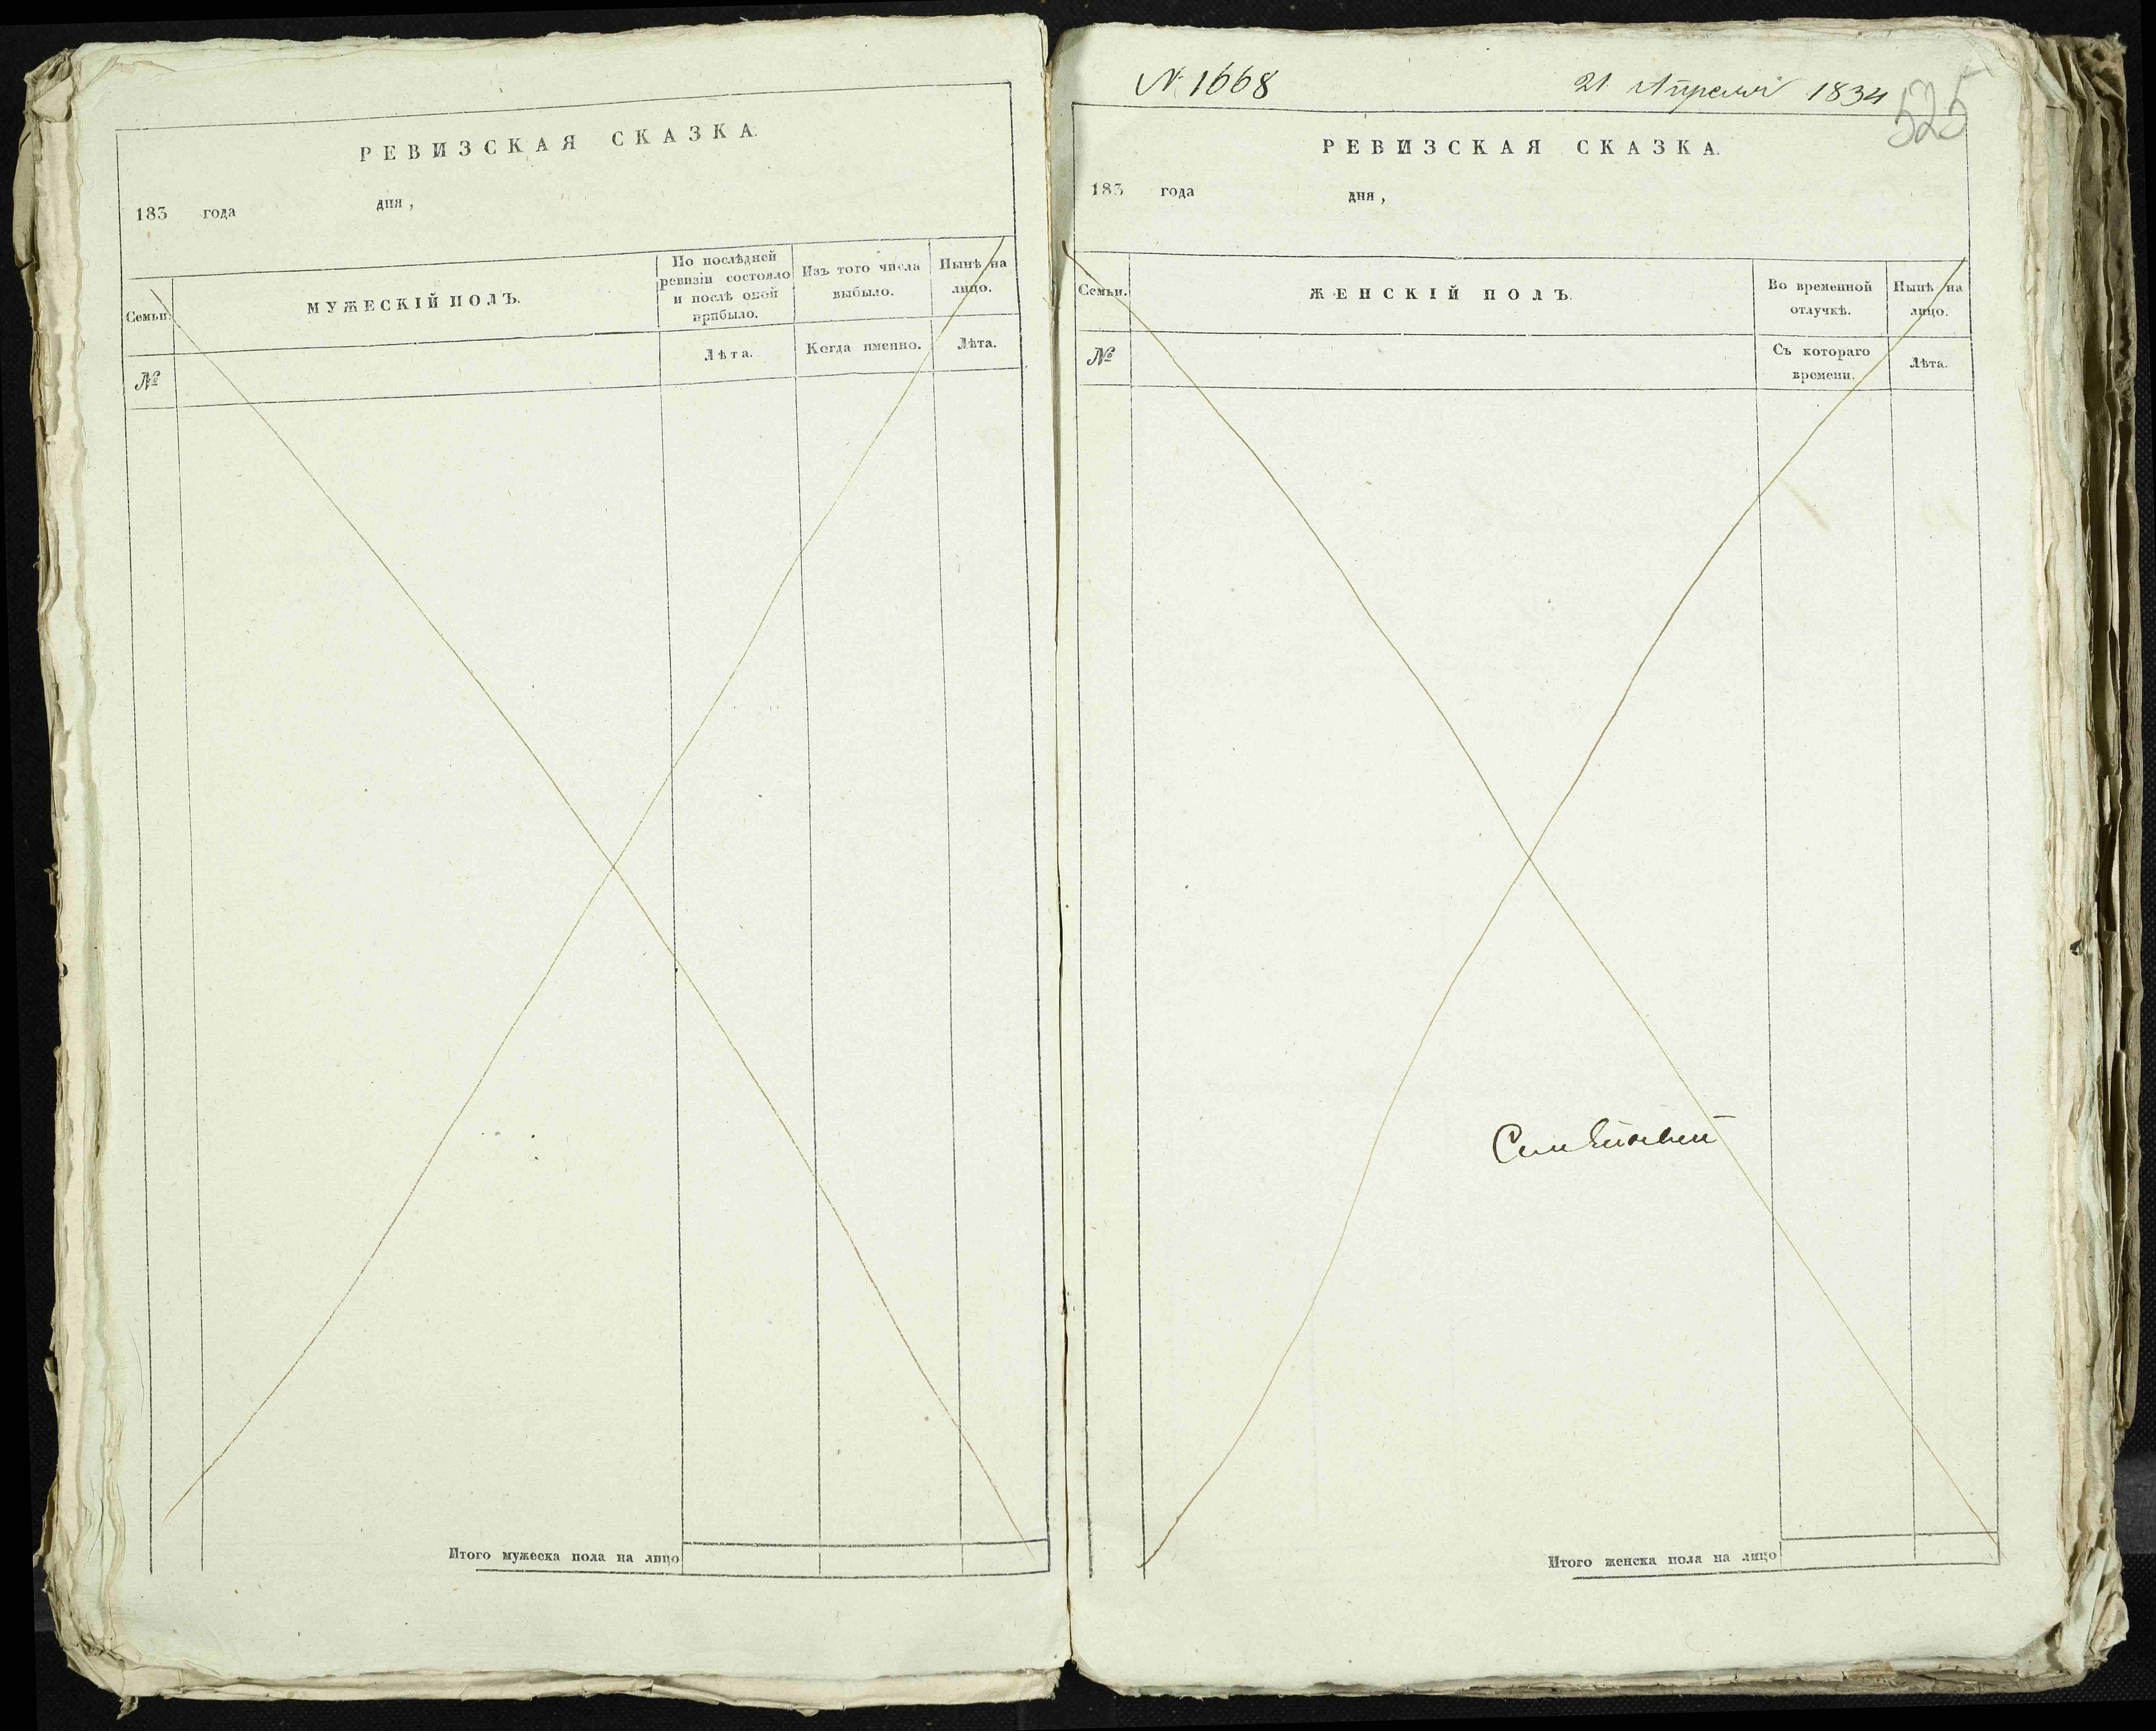 РЕВИЗСКАЯ СКАЗКА.
183 года дня,
Семьи.
МУЖЕСКІЙ ПОЛЪ.
По послѣдней ревизіи состояло и послѣ оной прибыло.
Изъ того числа выбыло.
Нынѣ на лицо.
№
Лѣта.
Когда именно.
Лѣта.
Итого мужеска пола на лицо
№ 1668
21 Апреля 1834
525
РЕВИЗСКАЯ СКАЗКА.
183 года дня,
Семьи.
ЖЕНСКІЙ ПОЛЪ.
Во временной отлучкѣ.
Нынѣ на лицо.
№
Съ котораго времени.
Лѣта.
Итого женска пола на лицо